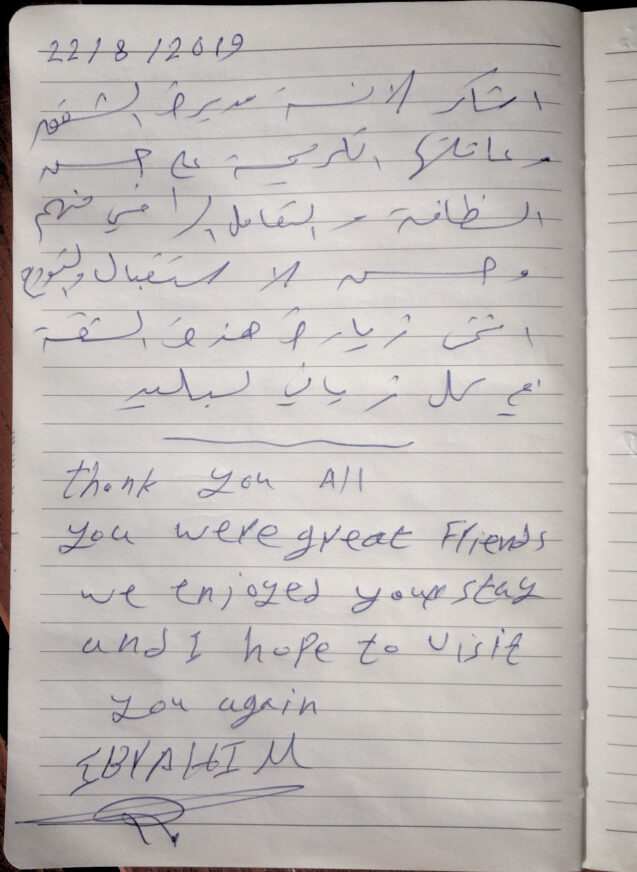 22/8/2019
اشكر الانسة مديرة الشقق
وعائلتها الكريمة على حسن
النظافة و التعامل الراقي منهم
وحسن الاستقبال والتوديع
اتمنى زيارة هذه الشقة
في كل زياراتي لبلد
thank you All
you were great Friends
we enjoyed your stay
and I hope to visit
you again
IBRAHIM